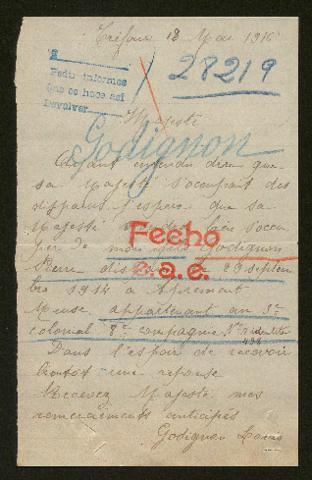 Tréfour 18 Mai 1916
28219
Pedir informes
Que se hace así
Devolver
Majesté
Godignon
Ayant entendu dire que
sa Majesté s'occupait des
disparus j'espère que sa
Majesté
per de mon Godignon
Fecho
Pierre 29 septem
e.a.e.
bre 1914 à Apremont
Meuse appartenant au 5e
colonial 8e compagnie
Dans l'espoir de recevoir
bientôt une réponse
Recevez Majesté mes
remerciements anticipés
Godignon Louis